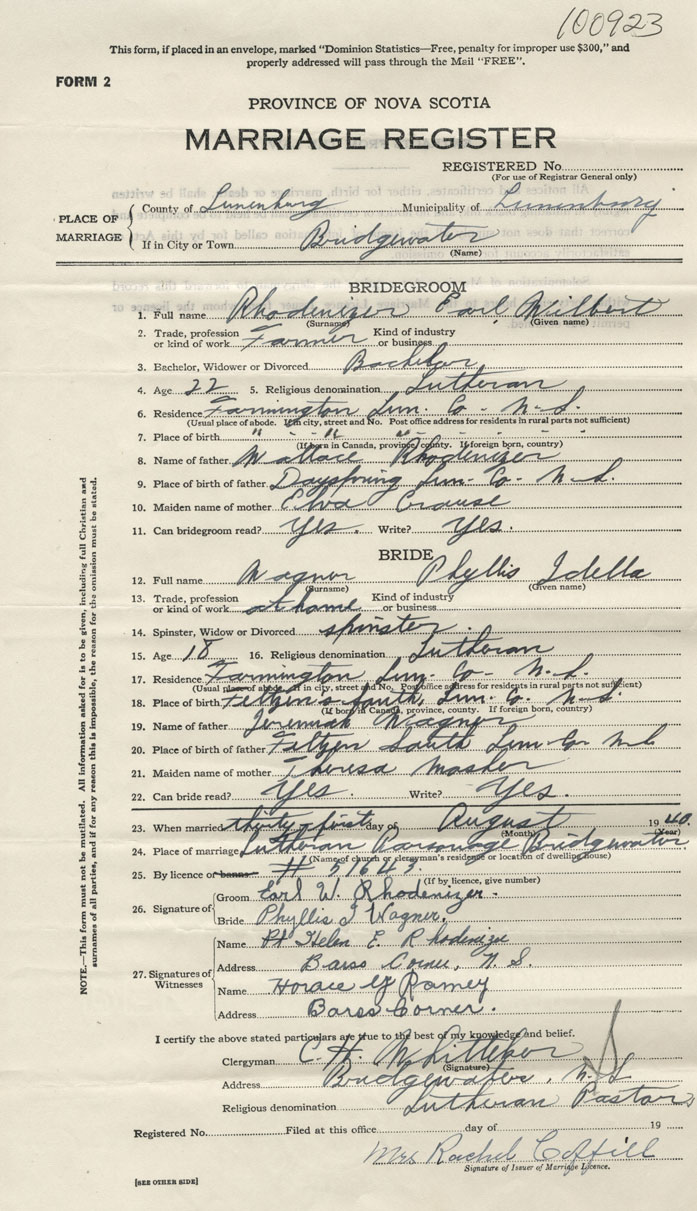 100923
This form, if placed in an envelope, marked "Dominion Statistics—Free, penalty for improper use $300," and
properly addressed will pass through the Mail "FREE".
FORM 2
PROVINCE OF NOVA SCOTIA
MARRIAGE REGISTER
REGISTERED No.
(For use of Registrar General only)
PLACE OF MARRIAGE
County of Lunenburg Municipality of Lunenburg
If in City or Town Bridgewater
(Name)
BRIDEGROOM
1. Full name Rhodenizer Earl Wilbert
(Surname) (Given name)
2. Trade, profession or kind of work Farmer Kind of industry or business
3. Bachelor, Widower or Divorced Bachelor
4. Age 22 5. Religious denomination Lutheran
6. Residence Farmington Lun. Co - N-S.
(Usual place of abode. If in city, street and No. Post office address for residents in rural parts not sufficient)
7. Place of birth " " " "
(If born in Canada, province, county. If foreign born, country)
8. Name of father Wallace Rhodenizer
9. Place of birth of father Dayspring Lun- Co- N-S.
10. Maiden name of mother Elva Crouse
11. Can bridegroom read? Yes. Write? Yes.
BRIDE
12. Full name Wagner Phyllis Idella
(Surname) (Given name)
13. Trade, profession or kind of work at home Kind of industry or business
14. Spinster, Widow or Divorced spinster.
15. Age 18 16. Religious denomination Lutheran
17. Residence Farmington Lun. Co- N-S.
(Usual place of abode. If in city, street and No. Post office address for residents in rural parts not sufficient)
18. Place of birth South Lun. Co. N-S.
(If born in Canada, province, county. If foreign born, country)
19. Name of father Jeremiah Wagner
20. Place of birth of father South Lun Co- N-S
21. Maiden name of mother Theresa Mosher
22. Can bride read? Yes. Write? Yes.
23. When married thirty-first day of August 1940.
(Month) (Year)
24. Place of marriage Lutheran Parsonage Bridgewater
(Name of church or clergyman's residence or location of dwelling house)
25. By licence or banns # 51643
(If by licence, give number)
26. Signature of
Groom Earl W. Rhodenizer.
Bride Phyllis I Wagner.
27. Signatures of Witnesses
Name Helen E. Rhodenizer
Address Barss Corner, N. S.
Name Horace Ramey
Address Barss Corner.
I certify the above stated particulars are true to the best of my knowledge and belief.
Clergyman C. H. Whitteker
(Signature)
Address Bridgewater, N. S
Religious denomination Lutheran Pastor
Registered No. Filed at this office day of 19
Mrs Rachel Coffill
Signature of Issuer of Marriage Licence.
[SEE OTHER SIDE]
NOTE.—This form must not be mutilated. All information asked for is to be given, including full Christian and
surnames of all parties, and if for any reason this is impossible, the reason for the omission must be stated.